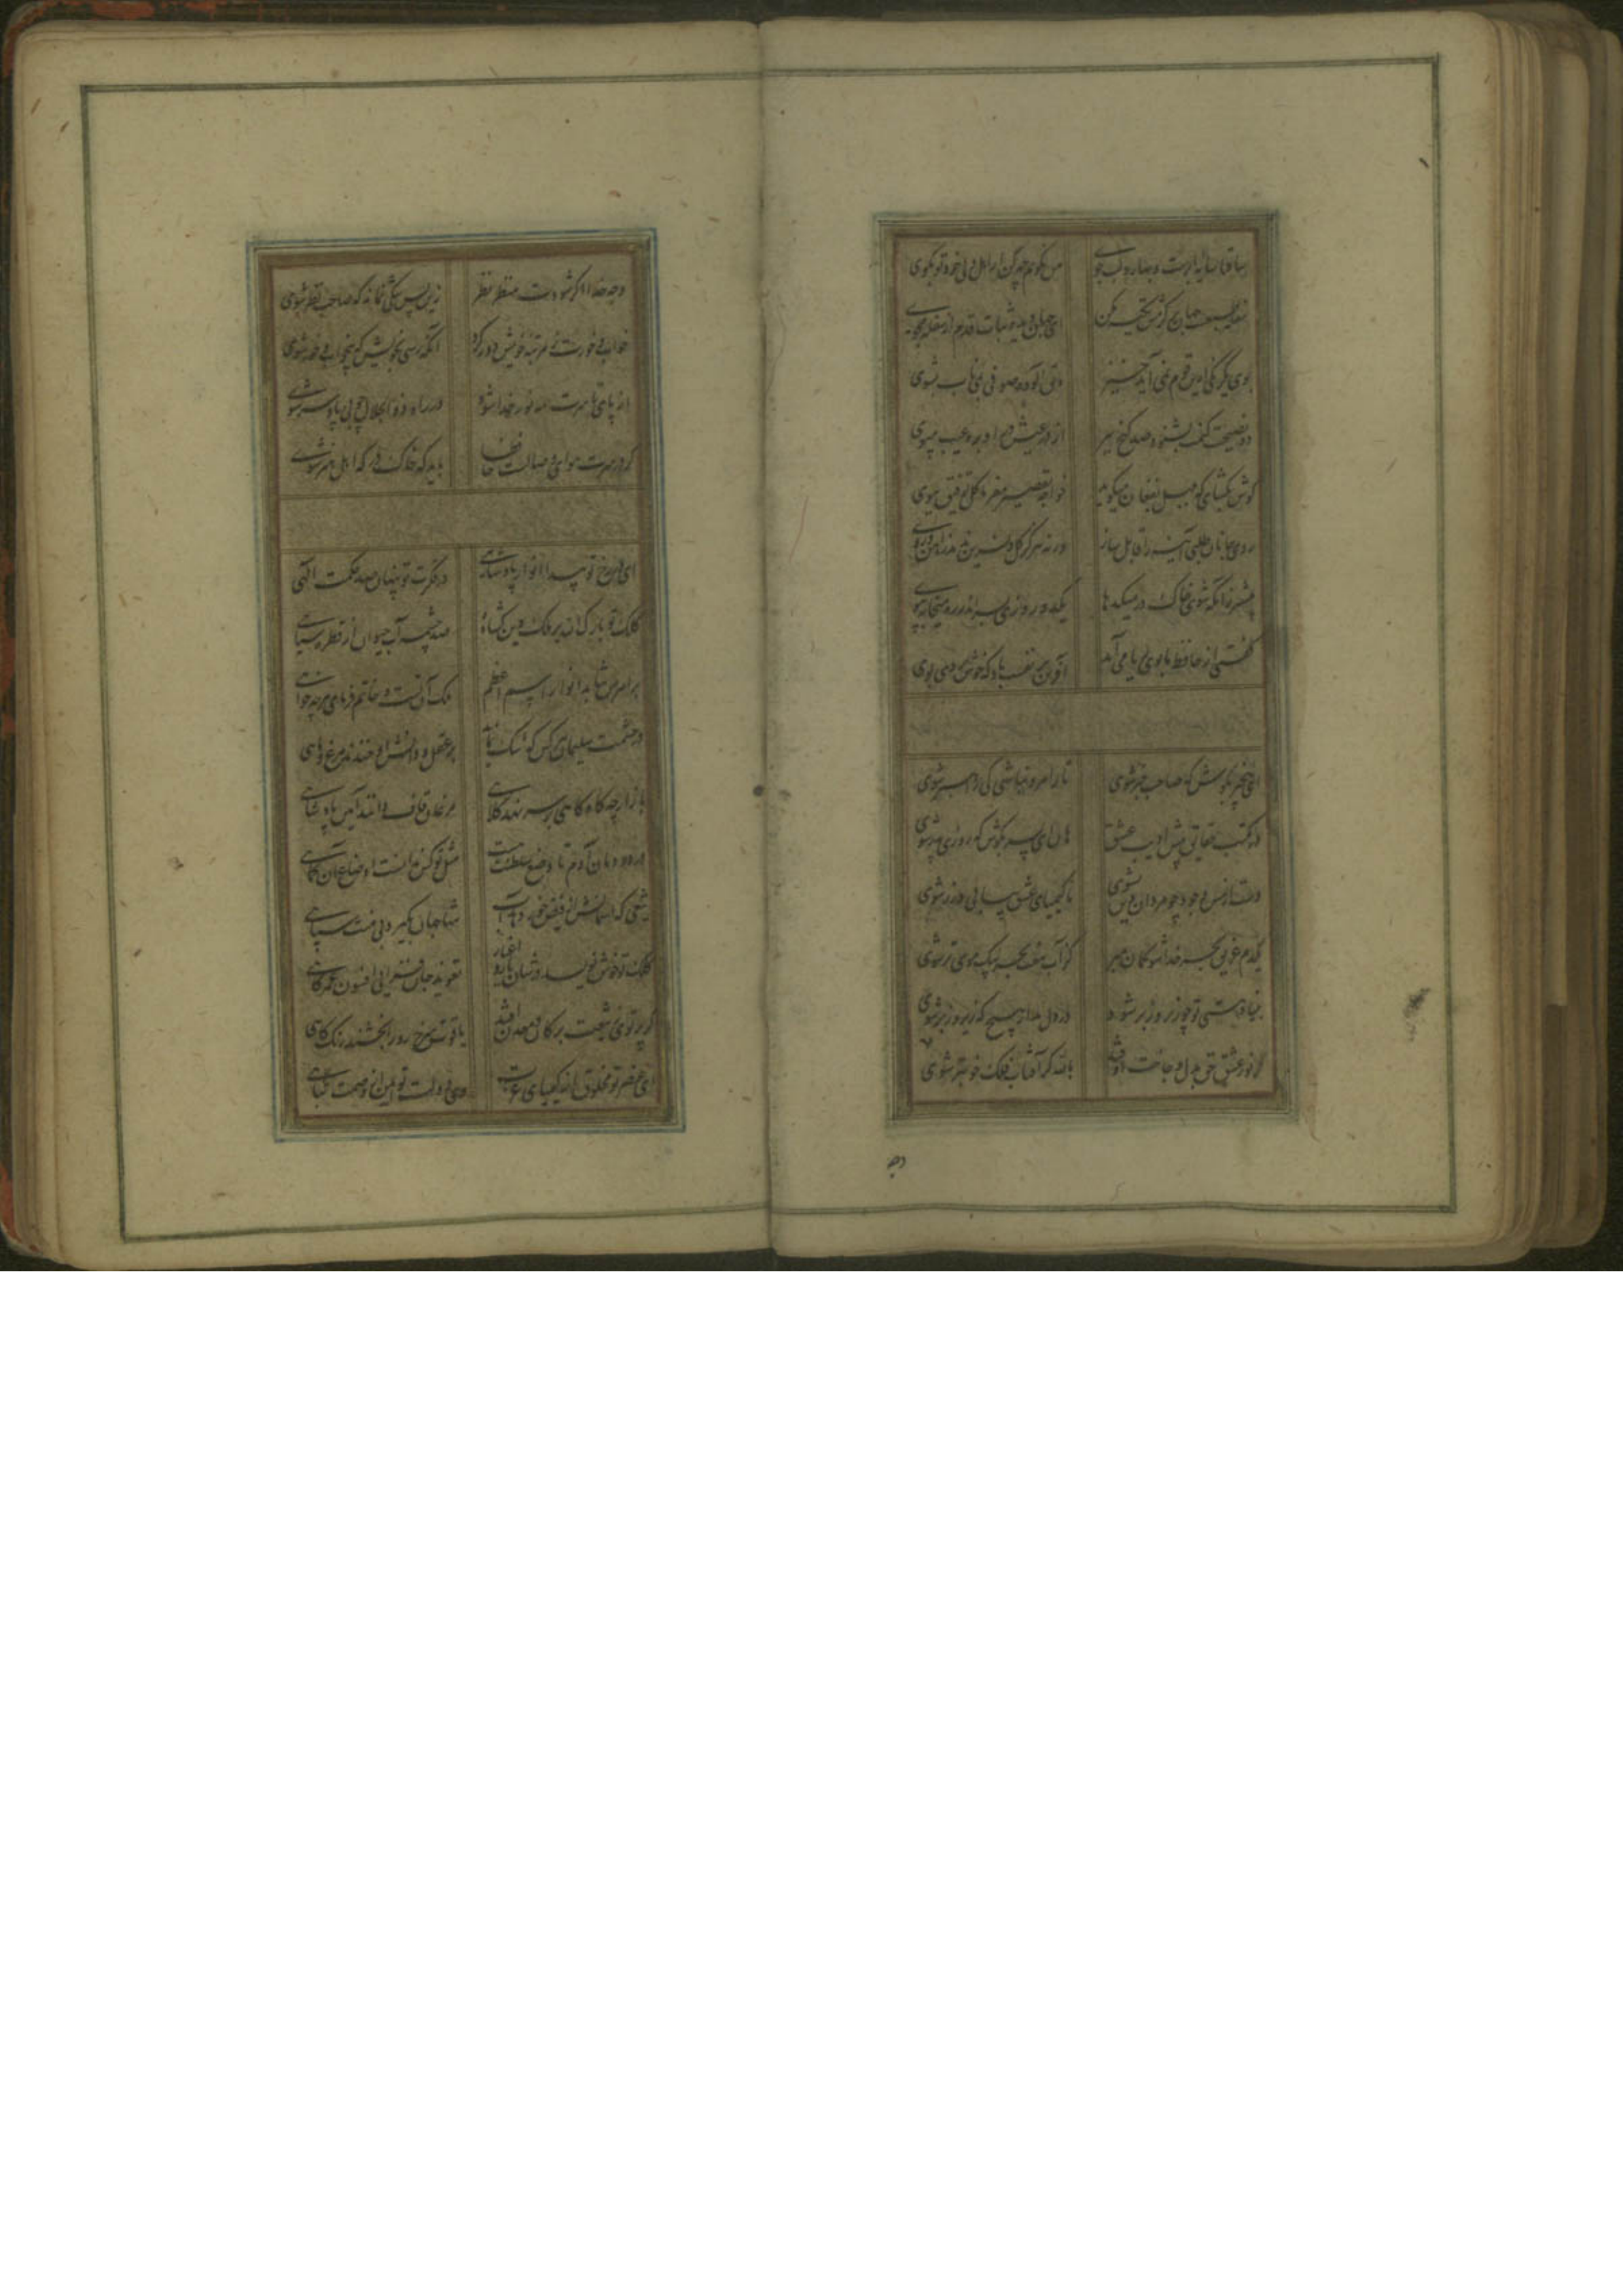 ساقیا سایه ابرست و بهار و لب جوی من نکویم چه کن ار اهل دلی خود تو بکوی
سفله طبعست جهان بر کرمش تکیه مکن ای جهان دیده ثبات قدم از سفله مجوی
بوی یکرنکی ازین قوم نمی آید خیز دلق آلوده صوفی بمی ناب بشوی
دو نصیحت کنمت بشنو و صد کنج ببر از در عیش درآ و بره عیب مپوی
کوش بکشای که بلبل بفغان میکوید خواجه تقصیر مفرما کل توفیق ببوی
روی جانان طلبی آینه را قابل ساز ورنه هرکز کل و نسرین ندمد ز آهن و روی
پیشتر زانکه شوی خاک در میکدها یکدو روزی بسر اندر ره میخانه بپوی
کفتی از حافظ ما بوی ریا می آید آفرین بر نفست باد که خوش بردی بوی
ای بیخبر بکوش که صاحب خبر شوی تا راه رو نباشی کی راهبر شوی
در مکتب حقایق پیش ادیب عشق هان ای پسر بکوش که روزی پدر شوی
دست از مس وجود چو مردان ره بشوی تا کیمیای عشق بیابی و زر شوی
یکدم غریق بحر خدا شو کمان مبر کز آب هفت بحر بیک موی تر شوی
بنیاد هستی تو چو زیر و زبر شود در دل مدار هیچ که زیر و زبر شوی
کر نور عشق حق بدل و جانت اوفتد بالله کز آفتاب فلک خوبتر شوی
وجه
وجه خدا اکر شودت منظر نظر زین پس شکی نماند که صاحب نظر شوی
خواب و خورت ز مرتبه خویش دور کرد آنکه رسی بخویش که بیخواب و خور شوی
از پای تا سرت همه نور خدا شود در راه ذوالجلال چو بی پا و سر شوی
کر در سرت هوای وصالست حافظا باید که خاک درکه اهل هنر شوی
ای در رخ تو پیدا انوار پادشاهی در فکرت تو پنهان صد حکمت الهی
کلک تو بارک الله بر ملک و دین کشاده صد چشمه آب حیوان از قطره سیاهی
بر اهرمن نتابد انوار اسم اعظم ملک آن تست و خاتم فرمای هر چه خواهی
در حشمت سلیمان هر کس که شک نماید بر عقل و دانش او خندند مرغ و ماهی
باز ارچه کاه کاهی بر سر نهد کلاهی مرغان قاف دانند آیین پادشاهی
در دودمان آدم تا وضع سلطنت هست مثل تو کس ندانست اوضاع آن کماهی
تیغی که آسمانش از فیض خود دهد آب تنها جهان بکیرد بی منت سپاهی
کلک تو خوش نویسد در شان یار و اغیار تعویذ جان فزایی افسون عمر کاهی
کر پرتوی ز تیغت بر کان و معدن افتد یاقوت سرخ رو را بخشند رنک کاهی
ای عنصر تو مخلوق از کیمیای عزت وی دولت تو ایمن از وصمت تباهی